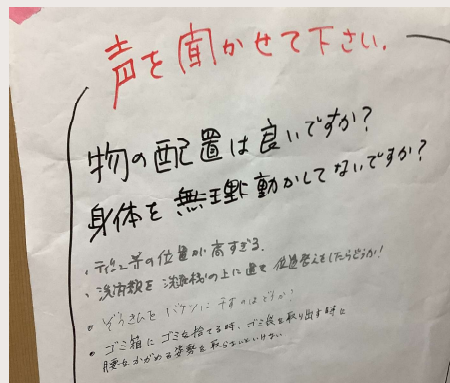 声を聞かせて下さい.
物の配置は良いですか?
身体を無理に動かしてないですか?
・ティシュ等の位置が高すぎる.
・洗剤類を洗濯機の上に置き 位置替えをしたらどうか!
• ぞうきんをバケツに干すのはどうか?
• ゴミ箱にゴミを捨てる時、ゴミ袋を取り出す時に
腰をかがめる姿勢を取らないといけない